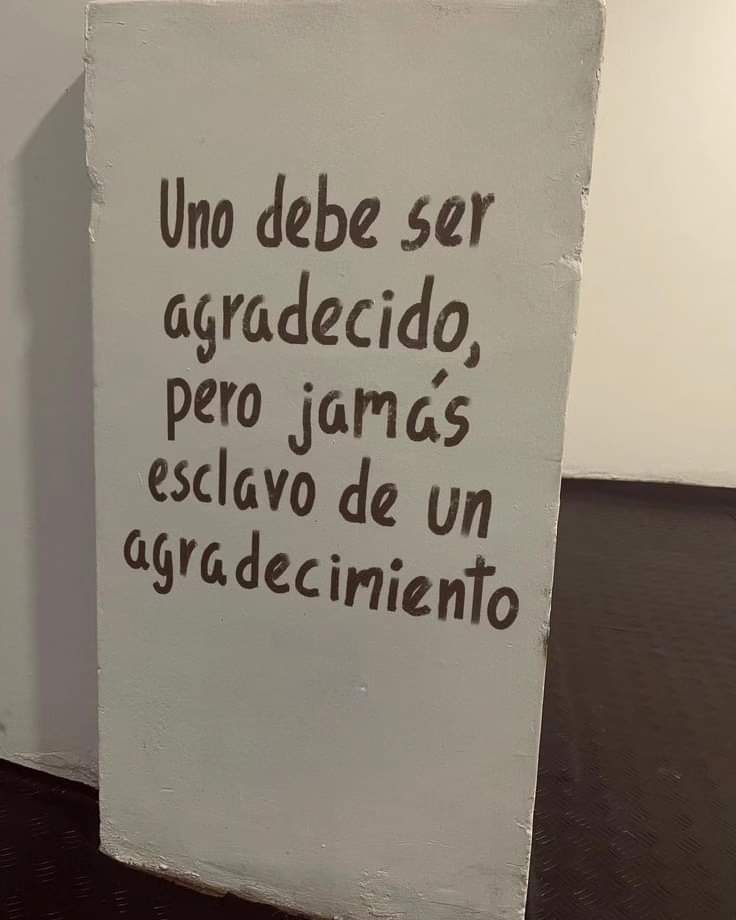 Uno debe ser
agradecido,
pero jamás
esclavo de un
agradecimiento